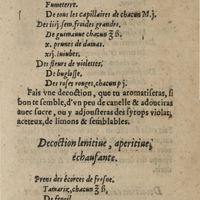 Fumeterre.
De tous les capillaires de chacun M.j.
Des iiij. sem. froides grandes,
De guimauue chacun ʒ ß.
x. prunes de damas.
xij. iuiubes.
Des fleurs de violettes,
De buglosse,
Des roses rouges, chacun p j.
Fais vne decoction, que tu aromatiseras, si
bon te semble, d'vn peu de canelle & adouciras
auec sucre, ou y adiousteras des syrops violat,
aceteux, de limons & semblables.
Decoction lenitiue, aperitiue,
échaufante.
Prens des écorces de fresne,
Tamarix, chacun ʒ ß.
De fenoil